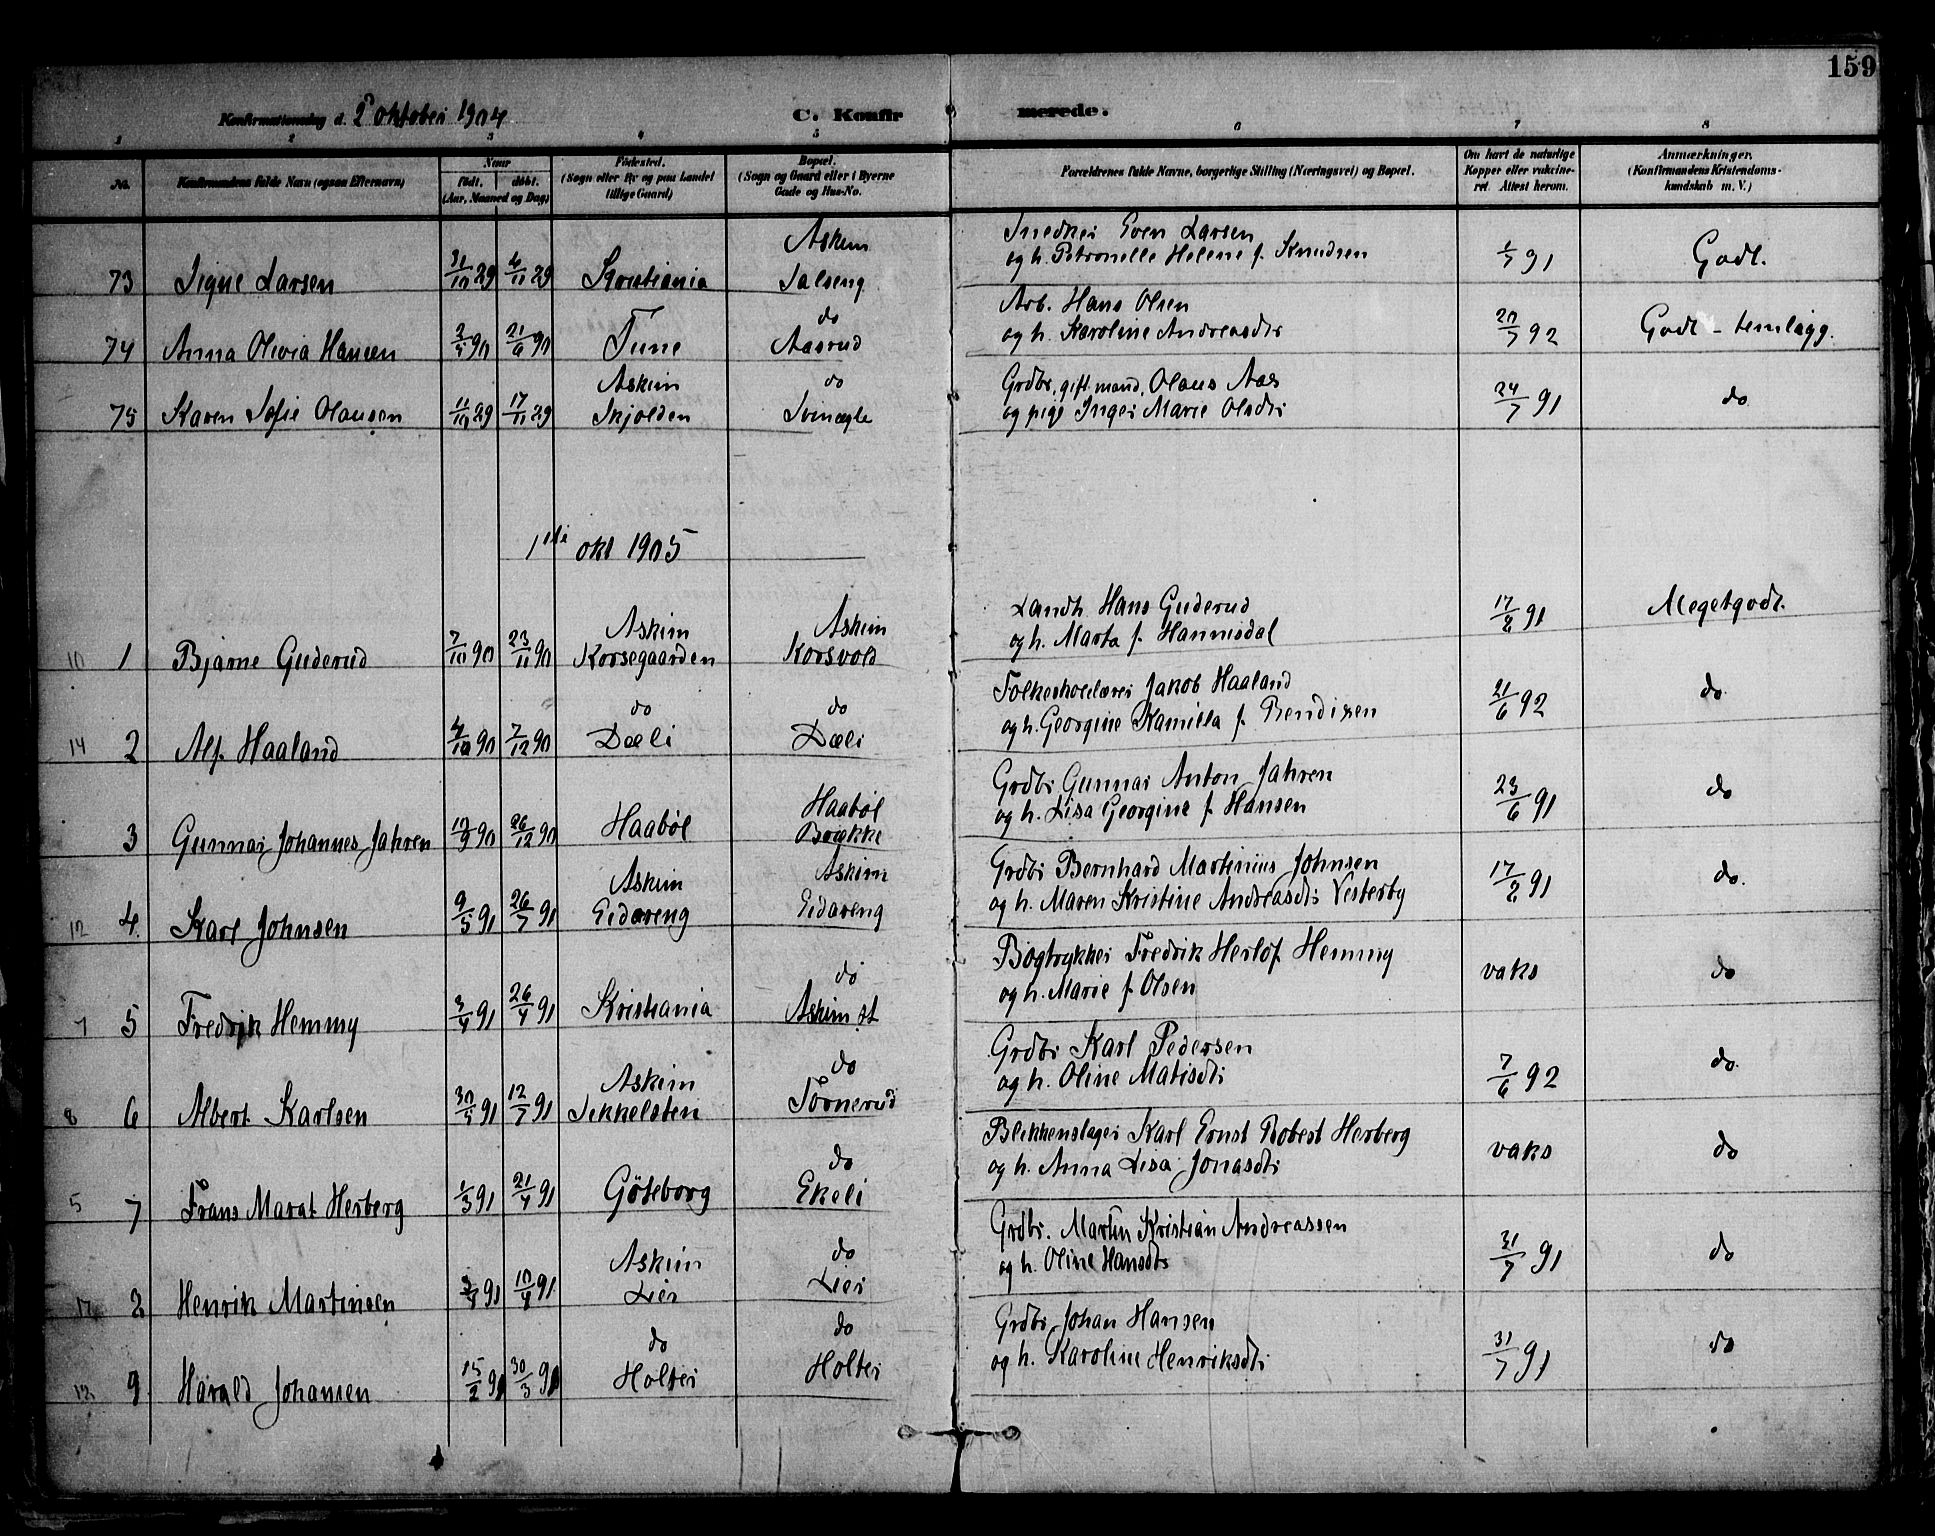 159
Konfirmationsdag d. 2 oktober 1904
C. Konfirmerede.
1 2 3 4 5 6 7 8
No.
Konfirmandens fulde Navn (ogsaa Efternavn)
Naar
født. døbt.
(Aar, Maaned og Dag)
Fødested.
(Sogn eller By og paa Landet
tillige Gaard)
Bopæl.
(Sogn og Gaard eller i Byerne
Gade og Hus-No.
Forældrenes fulde Navne, borgerlige Stilling (Næringsvei) og Bopæl.
Om havt de naturlige
Kopper eller vakcine-
ret. Attest herom.
Anmærkninger.
(Konfirmandens Kristendoms-
kundskab m. V.)
Askim
Snedker Even Larsen
73 Signe Larsen 31/10 89 4/11 89 Kristiania Salseng
og h. Petronelle Helene f. Knudsen 1/7 91 Godt.
do
Arb. Hans Olsen
74 Anna Olivia Hansen 2/5 90 21/6 90 Tune Aasrud
og h. Karoline Andreasdtr 20/7 92 Godt - temlågg.
Askim do
Grdbr. gift mand, Olaus Aas
75 Karen Sofie Olausen 11/10 89 17/11 89 Skjolden
og pige Inger Marie Olsdtr 24/7 91 do
1ste okt 1905
Askim Askim
Landh. Hans Guderud
10 1 Bjarne Guderud 7/10 90 23/11 90 Korsegaarden Korsvold
og h. Marta f. Hannisdal 17/8 91 Megetgodt.
do do
Folkeskolelærer Jakob Haaland
14 2 Alf Haaland 4/10 90 7/12 90 Dæli Dæli
og h. Georgine Kamilla f. Bendixen 21/6 92 do
Haabøl
Grdbr Gunnar Anton Jahren
3 Gunnar Johannes Jahren 10/9 90 26/12 90 Haabøl Brække
og h. Lisa Georgine f. Hansen 23/6 91 do
Askim Askim
Grdbr Bernhard Martinius Johnsen
12 4. Karl Johnsen 9/5 91 26/7 91 Eidareng Eidareng
og h. Maren Kristine Andreasdtr Vesterby 17/8 91 do.
do
Bogtrykker Fredrik Herlof Hemmy
7 5 Fredrik Hemmy 3/4 91 26/4 91 Kristiania Askim st
og h. Marie f. Olsen vaks do
Askim do
Grdbr Karl Pedersen
8 6 Albert Karlsen 30/5 91 12/7 91 Sekkelsten Tornerud
og h. Oline Matisdtr 7/6 92 do.
do
Blikkenslager Karl Ernst Robert Herberg
5 7 Frans Marat Herberg 1/3 91 21/4 91 Göteborg Ekeli
og h. Anna Lisa Jonasdtr vaks do
Askim do
Grdbr. Martin Kristian Andreassen
8 Henrik Martinsen 3/4 91 10/4 91. Lier Lier
og h. Oline Hansdtr 31/7 91 do
do do
Grdbr Johan Hansen
9 Harald Johansen 15/2 91 30/3 91 Holter Holter
og h. Karoline Henriksdtr 31/7 91 do